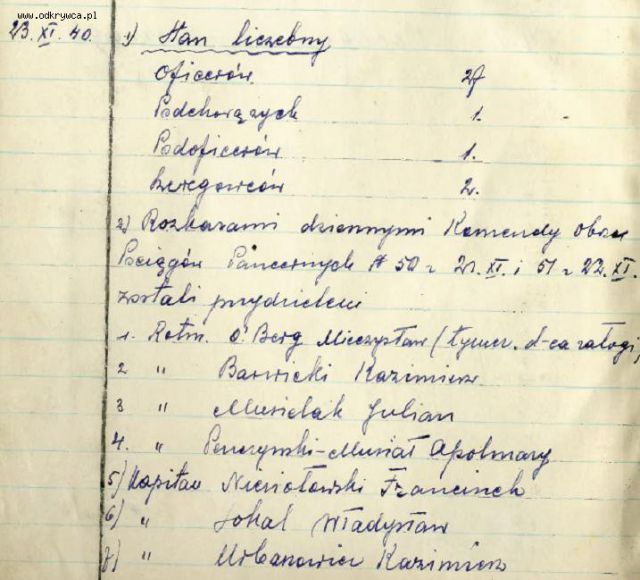 www.odkrywca.pl
23. XI. 40. 1) Stan liczebny
Oficerów 27
Podchorążych 1.
Podoficerów 1.
Szeregowców 2.
2) Rozkazami dziennymi Komendy Obozu
Pociągów Pancernych # 50 z 21. XI. i 51 z 22. XI.
zostali przydzieleni
1. Rotm. O. Berg Mieczysław (tymcz. d-ca załogi)
2 " Barwicki Kazimierz
3 " Musielak Julian
4. " -Musiał Apolinary
5) Kapitan Niesiołowski Franciszek
6) " Sokal Władysław
7) " Urbanowicz Kazimierz